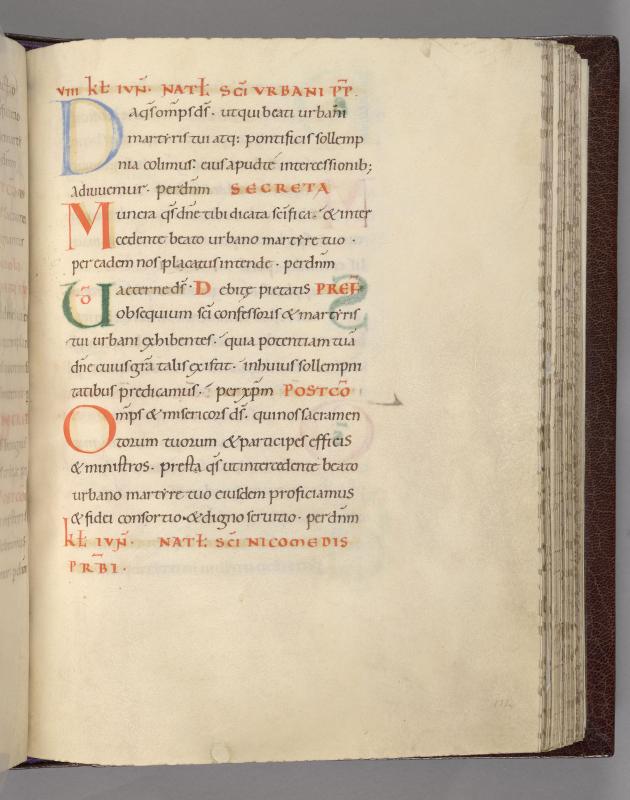 VIII kł IVÑ. NATŁ. SC̄I VRBANI PP̄.
Da qs̄ omp̄s ds̄. ut qui beati urbani
martyris tui atq; pontificis sollemp
nia colimus. eius apud te intercessionib;
adiuuemur. per dn̄m SECRETA
Munera qs̄ dn̄e tibi dicata sc̄ifica. & inter
cedente beato urbano martyre tuo.
per eadem nos placatus intende. per dn̄m
UO aeterne ds̄. Debitę pietatis PREF
obsequium sc̄i confessoris & martyris
tui urbani exhibentes. quia potentiam tuā
dn̄e cuius gr̄a talis existit. in huius sollempni
tatibus predicamus. per xp̄m POSTCŌ
Omp̄s & misericors ds̄. qui nos sacramen
torum tuorum & participes efficis
& ministros. presta qs̄ ut intercedente beato
urbano martyre tuo eiusdem proficiamus
& fidei consortio. & digno seruitio. per dn̄m
kł IVÑ. NATŁ. SC̄I NICOMEDIS
PRB̄I.